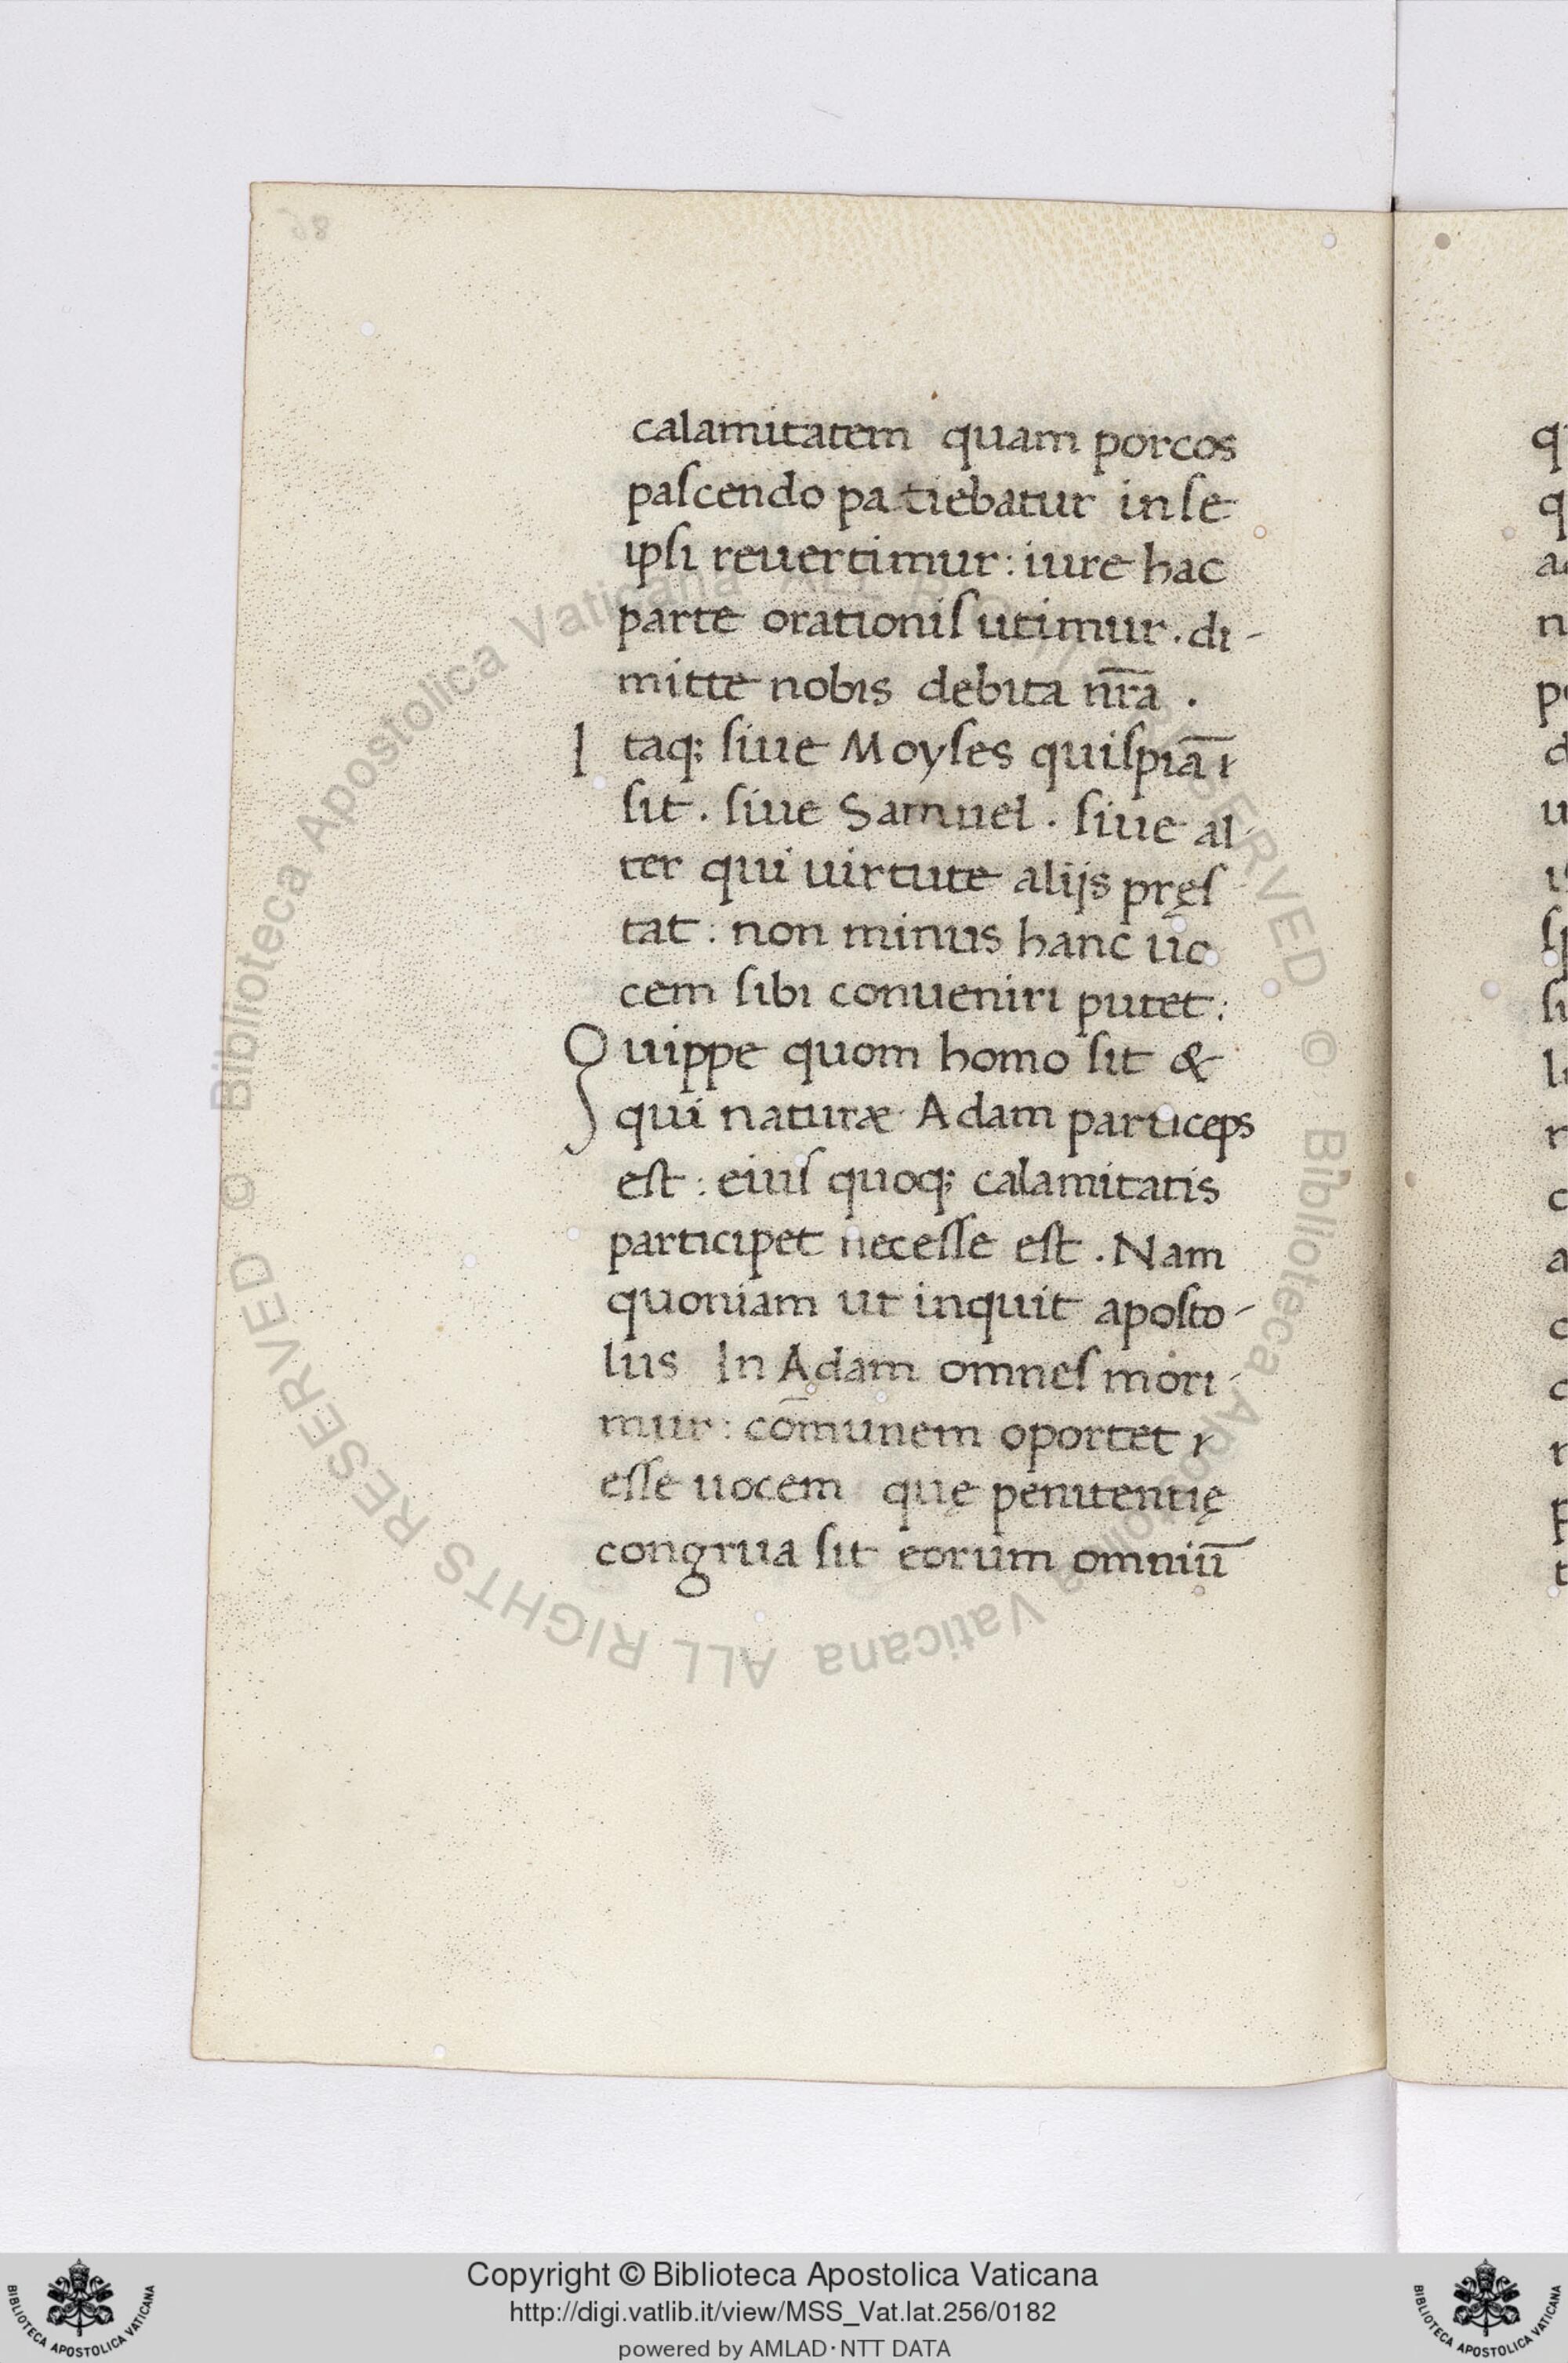 calamitatem quam porcos
paſcendo patiebatur in ſe
ipſi reuertimur : iure hac
parte orationiſ utimur . di-
mitte nobis debita nr̅a .
I taq; ſiue Moyſes quiſpiā
ſit . ſiue Samuel . ſiue al-
ter qui uirtute alijs pręſ
tat : non minus hanc uo
cem ſibi conueniri putet :
Quippe quom homo ſit &
qui naturæ Adam particeps
eſt : eiuſ quoq; calamitatis
participet neceſſe eſt . Nam
quoniam ut inquit apoſto-
lus In Adam omneſ mori-
mur : cōmunem oportet
eſſe uocem quę penitentię
congrua ſit eorum omniū
Copyright © Biblioteca Apostolica Vaticana
http://digi.vatlib.it/view/MSS_Vat.lat.256/0182
powered by AMLAD·NTT DATA
BIBLIOTECA APOSTOLICA VATICANA
BIBLIOTECA APOSTOLICA VATICANA
© Biblioteca Apostolica Vaticana ALL RIGHTS RESERVED
© Biblioteca Apostolica Vaticana ALL RIGHTS RESERVED